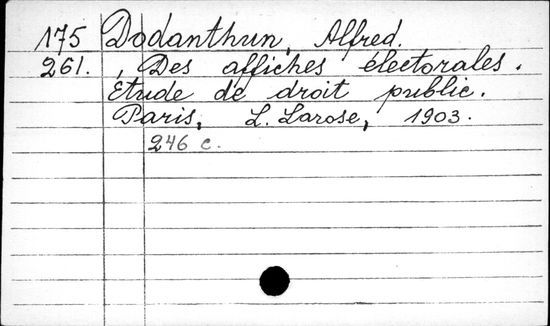 175 Dodanthun, Alfred.
261. , Des affiches électorales.
Étude de droit public.
Paris, L. Larose, 1903.
246 c.